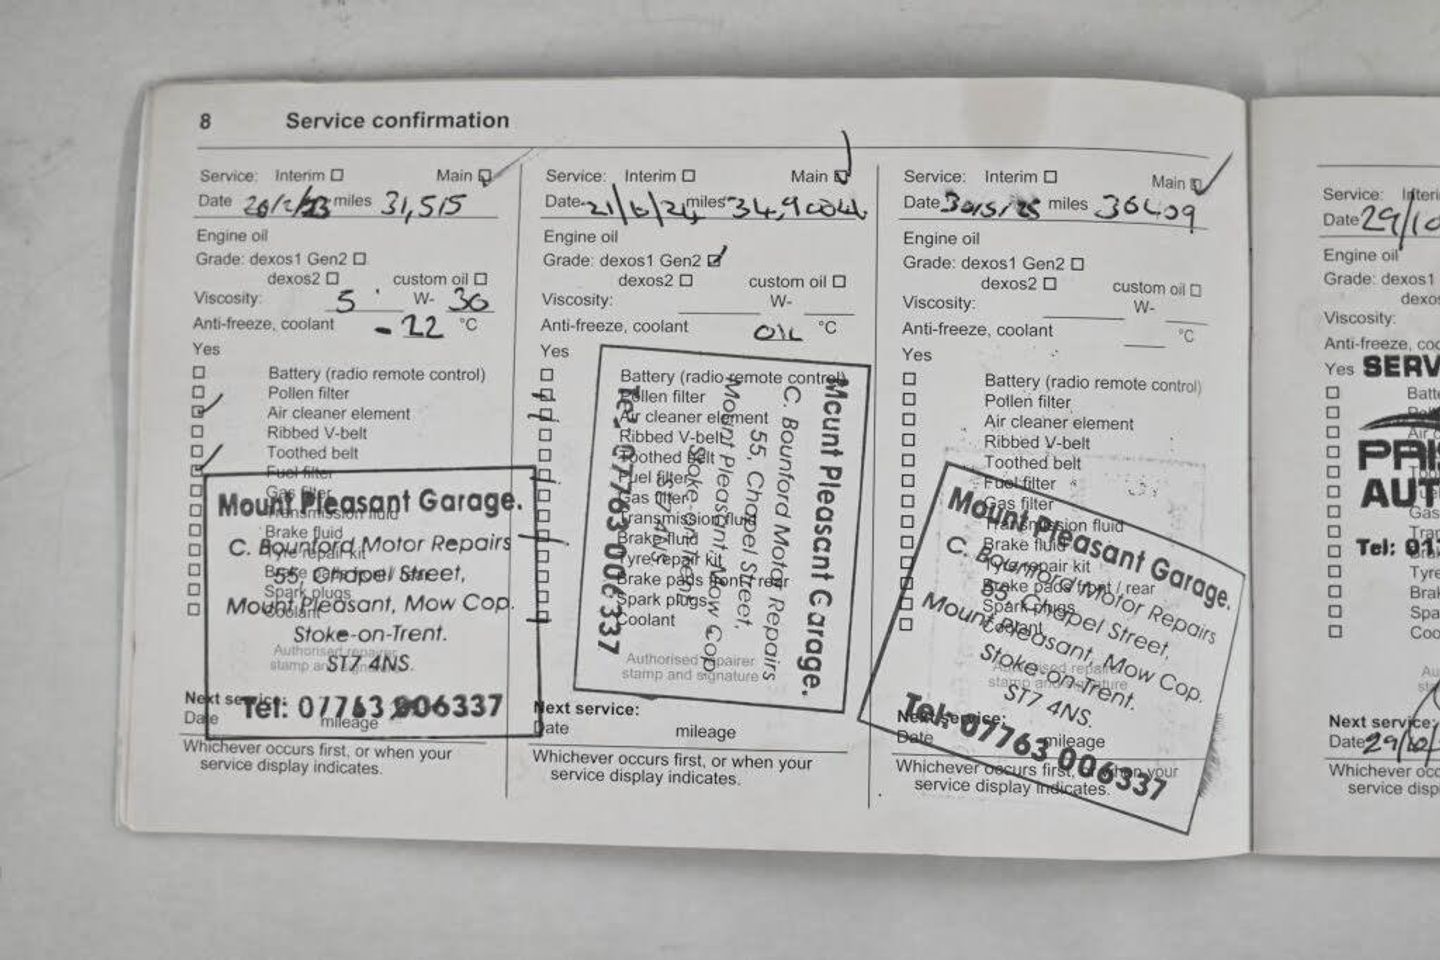 8 Service confirmation
Service: Interim Main
Date 20/2/23 miles 31,515
Engine oil
Grade: dexos1 Gen2
dexos2 custom oil
Viscosity: 5 W- 30
Anti-freeze, coolant -22 °C
Yes
Battery (radio remote control)
Pollen filter
Air cleaner element
Ribbed V-belt
Toothed belt
Fuel filter
Gas filter
Transmission fluid
Brake fluid
Tyre repair kit
Spark plugs
Coolant
Authorised repairer
stamp and
Mount Pleasant Garage.
C. Bounford Motor Repairs
55, Chapel Street,
Mount Pleasant, Mow Cop.
Stoke-on-Trent.
ST7 4NS.
Tel: 07763 006337
Next service:
Date mileage
Whichever occurs first, or when your
service display indicates.
Service: Interim Main
Date 21/6/24 miles 34,900
Engine oil
Grade: dexos1 Gen2
dexos2 custom oil
Viscosity: W-
Anti-freeze, coolant OIL °C
Yes
Battery (radio remote control)
Pollen filter
Air cleaner element
Ribbed V-belt
Toothed belt
Fuel filter
Gas filter
Transmission fluid
Brake fluid
Tyre repair kit
Brake pads front / rear
Spark plugs
Coolant
Authorised repairer
stamp and signature
Mount Pleasant Garage.
C. Bounford Motor Repairs
55, Chapel Street,
Mount Pleasant, Mow Cop
Stoke-on-Trent.
ST7 4NS.
Tel: 07763 006337
Next service:
Date mileage
Whichever occurs first, or when your
service display indicates.
Service: Interim Main
Date 30/5/25 miles 36409
Engine oil
Grade: dexos1 Gen2
dexos2 custom oil
Viscosity: W-
Anti-freeze, coolant °C
Yes
Battery (radio remote control)
Pollen filter
Air cleaner element
Ribbed V-belt
Toothed belt
Fuel filter
Gas filter
Transmission fluid
Brake fluid
Tyre repair kit
Brake pads front / rear
Spark plugs
Coolant
Authorised repairer
stamp and signature
Mount Pleasant Garage.
C. Bounford Motor Repairs
55, Chapel Street,
Mount Pleasant, Mow Cop.
Stoke-on-Trent.
ST7 4NS.
Tel: 07763 006337
Next service:
Date mileage
Whichever occurs first, or when your
service display indicates.
Service: Interi
Date 29/10
Engine oil
Grade: dexos1
dexos
Viscosity:
Anti-freeze, coo
Yes SERV
Batte
PRIS
AUT
Gas
Tran
Tel: 01
Tyre
Brak
Spa
Coo
Next service:
Date 29/10/
Whichever occ
service disp